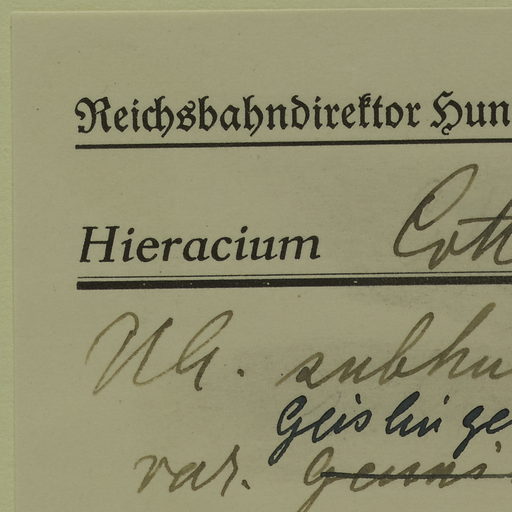 Reichsbahndirektor Hun
Hieracium Cott
Ub. subhu
Geislinge
var.